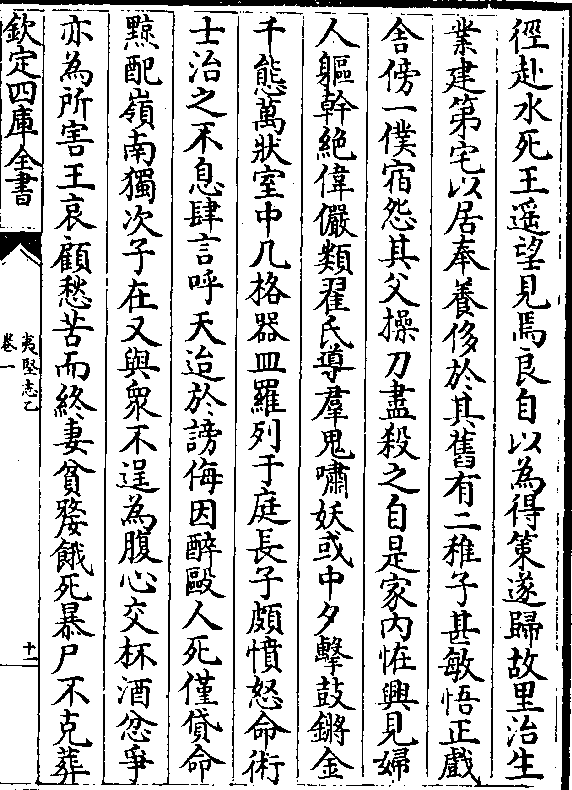 徑赴水死王遥望見焉良自以為得策遂歸故里治生
業建第宅以居奉養侈於其舊有二稚子甚敏悟正戲
舍傍一僕宿怨其父操刀盡殺之自是家内恠興見婦
人軀幹絶偉儼類翟氏導羣鬼嘯妖或中夕擊鼓鏘金
千態萬狀室中几格器皿羅列于庭長子頗憤怒命術
士治之不息肆言呼天迨於謗侮因醉毆人死僅貸命
黥配嶺南獨次子在又與衆不逞為腹心交杯酒忿爭
亦為所害王哀顧愁苦而終妻貧骎餓死暴尸不克葬
欽定四庫全書
夷堅志乙
卷一
十一